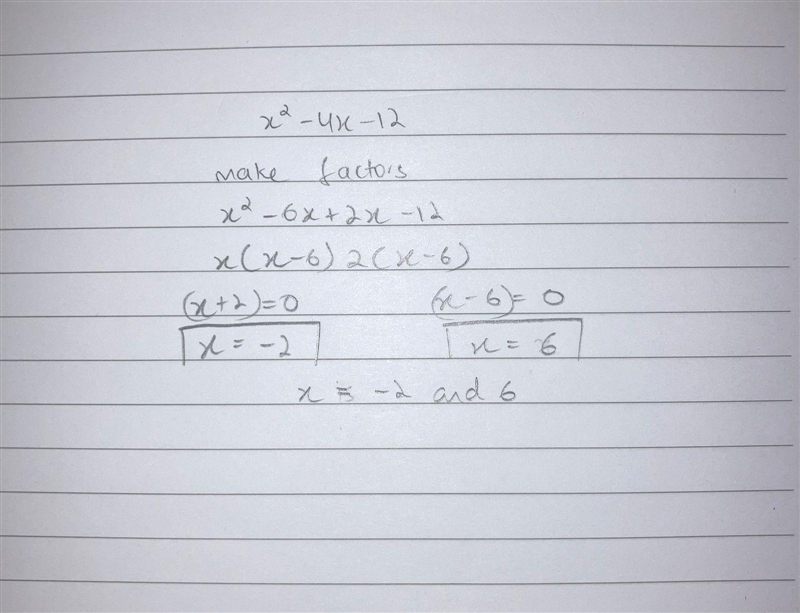 x² - 4x - 12
make factors
x² - 6x + 2x - 12
x(x-6) 2(x-6)
(x+2)=0 (x-6)=0
x = -2 x = 6
x = -2 and 6